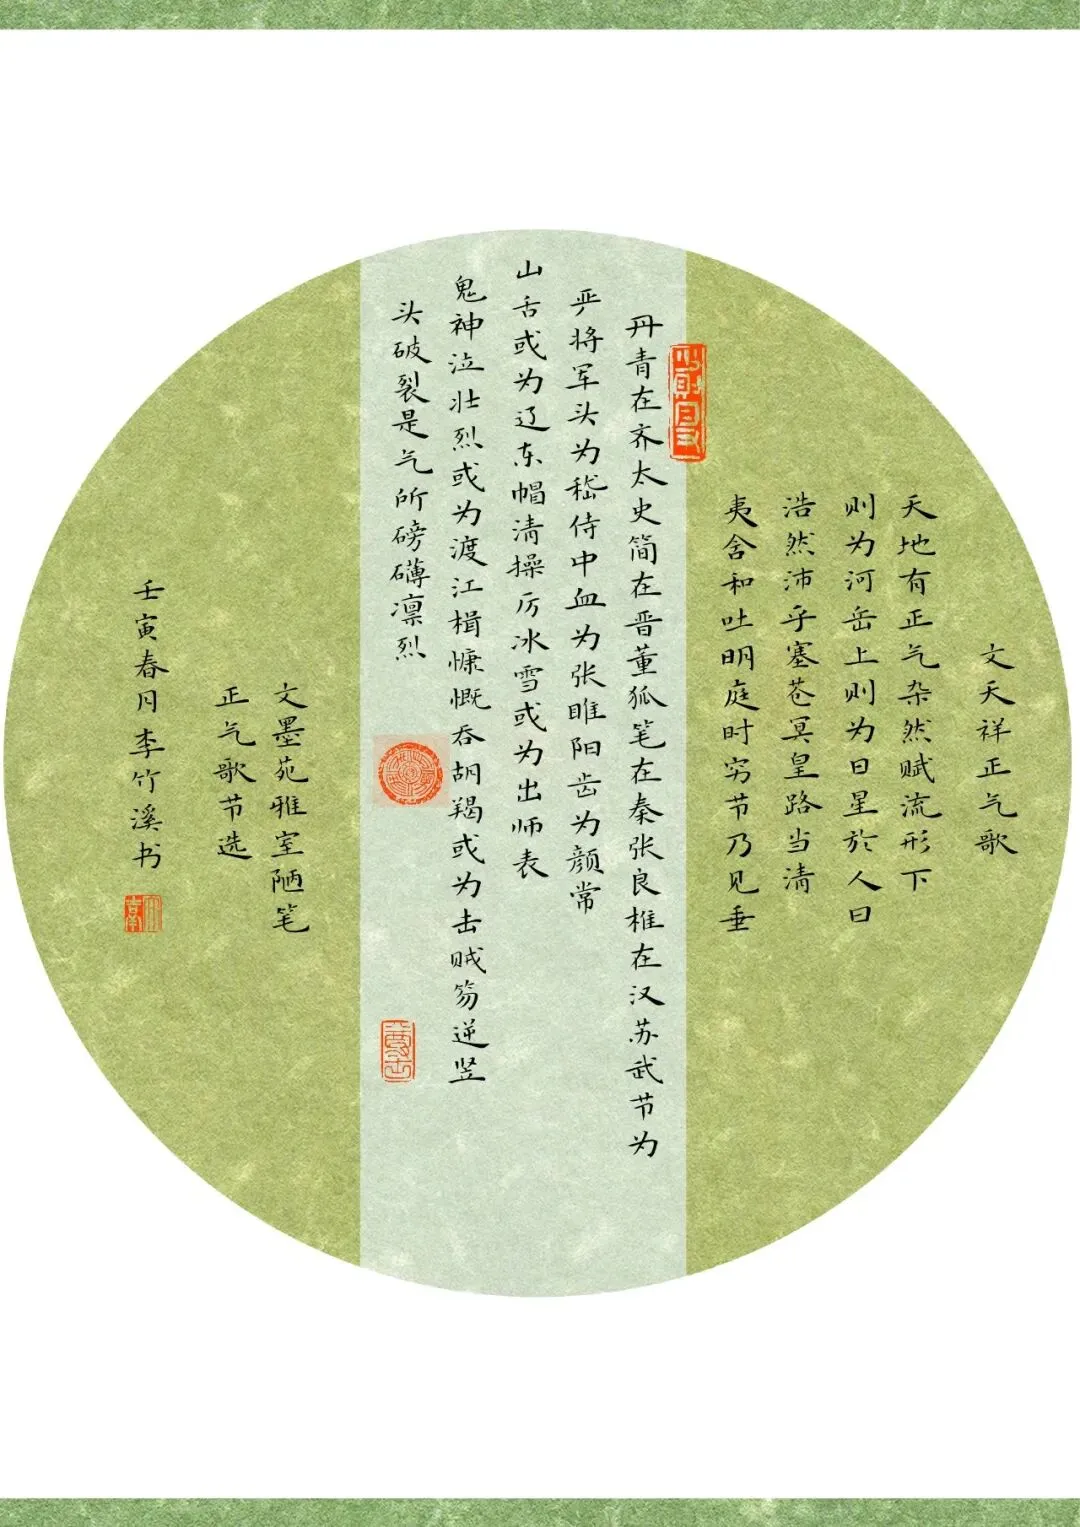 文天祥正气歌
天地有正气杂然赋流形下
则为河岳上则为日星於人曰
浩然沛乎塞苍冥皇路当清
夷含和吐明庭时穷节乃见垂
丹青在齐太史简在晋董狐笔在秦张良椎在汉苏武节为
严将军头为嵇侍中血为张睢阳齿为颜常
山舌或为辽东帽清操厉冰雪或为出师表
鬼神泣壮烈或为渡江楫慷慨吞胡羯或为击贼笏逆竖
头破裂是气所磅礴凛烈
文墨苑雅室陋笔
正气歌节选
壬寅春月李竹溪书